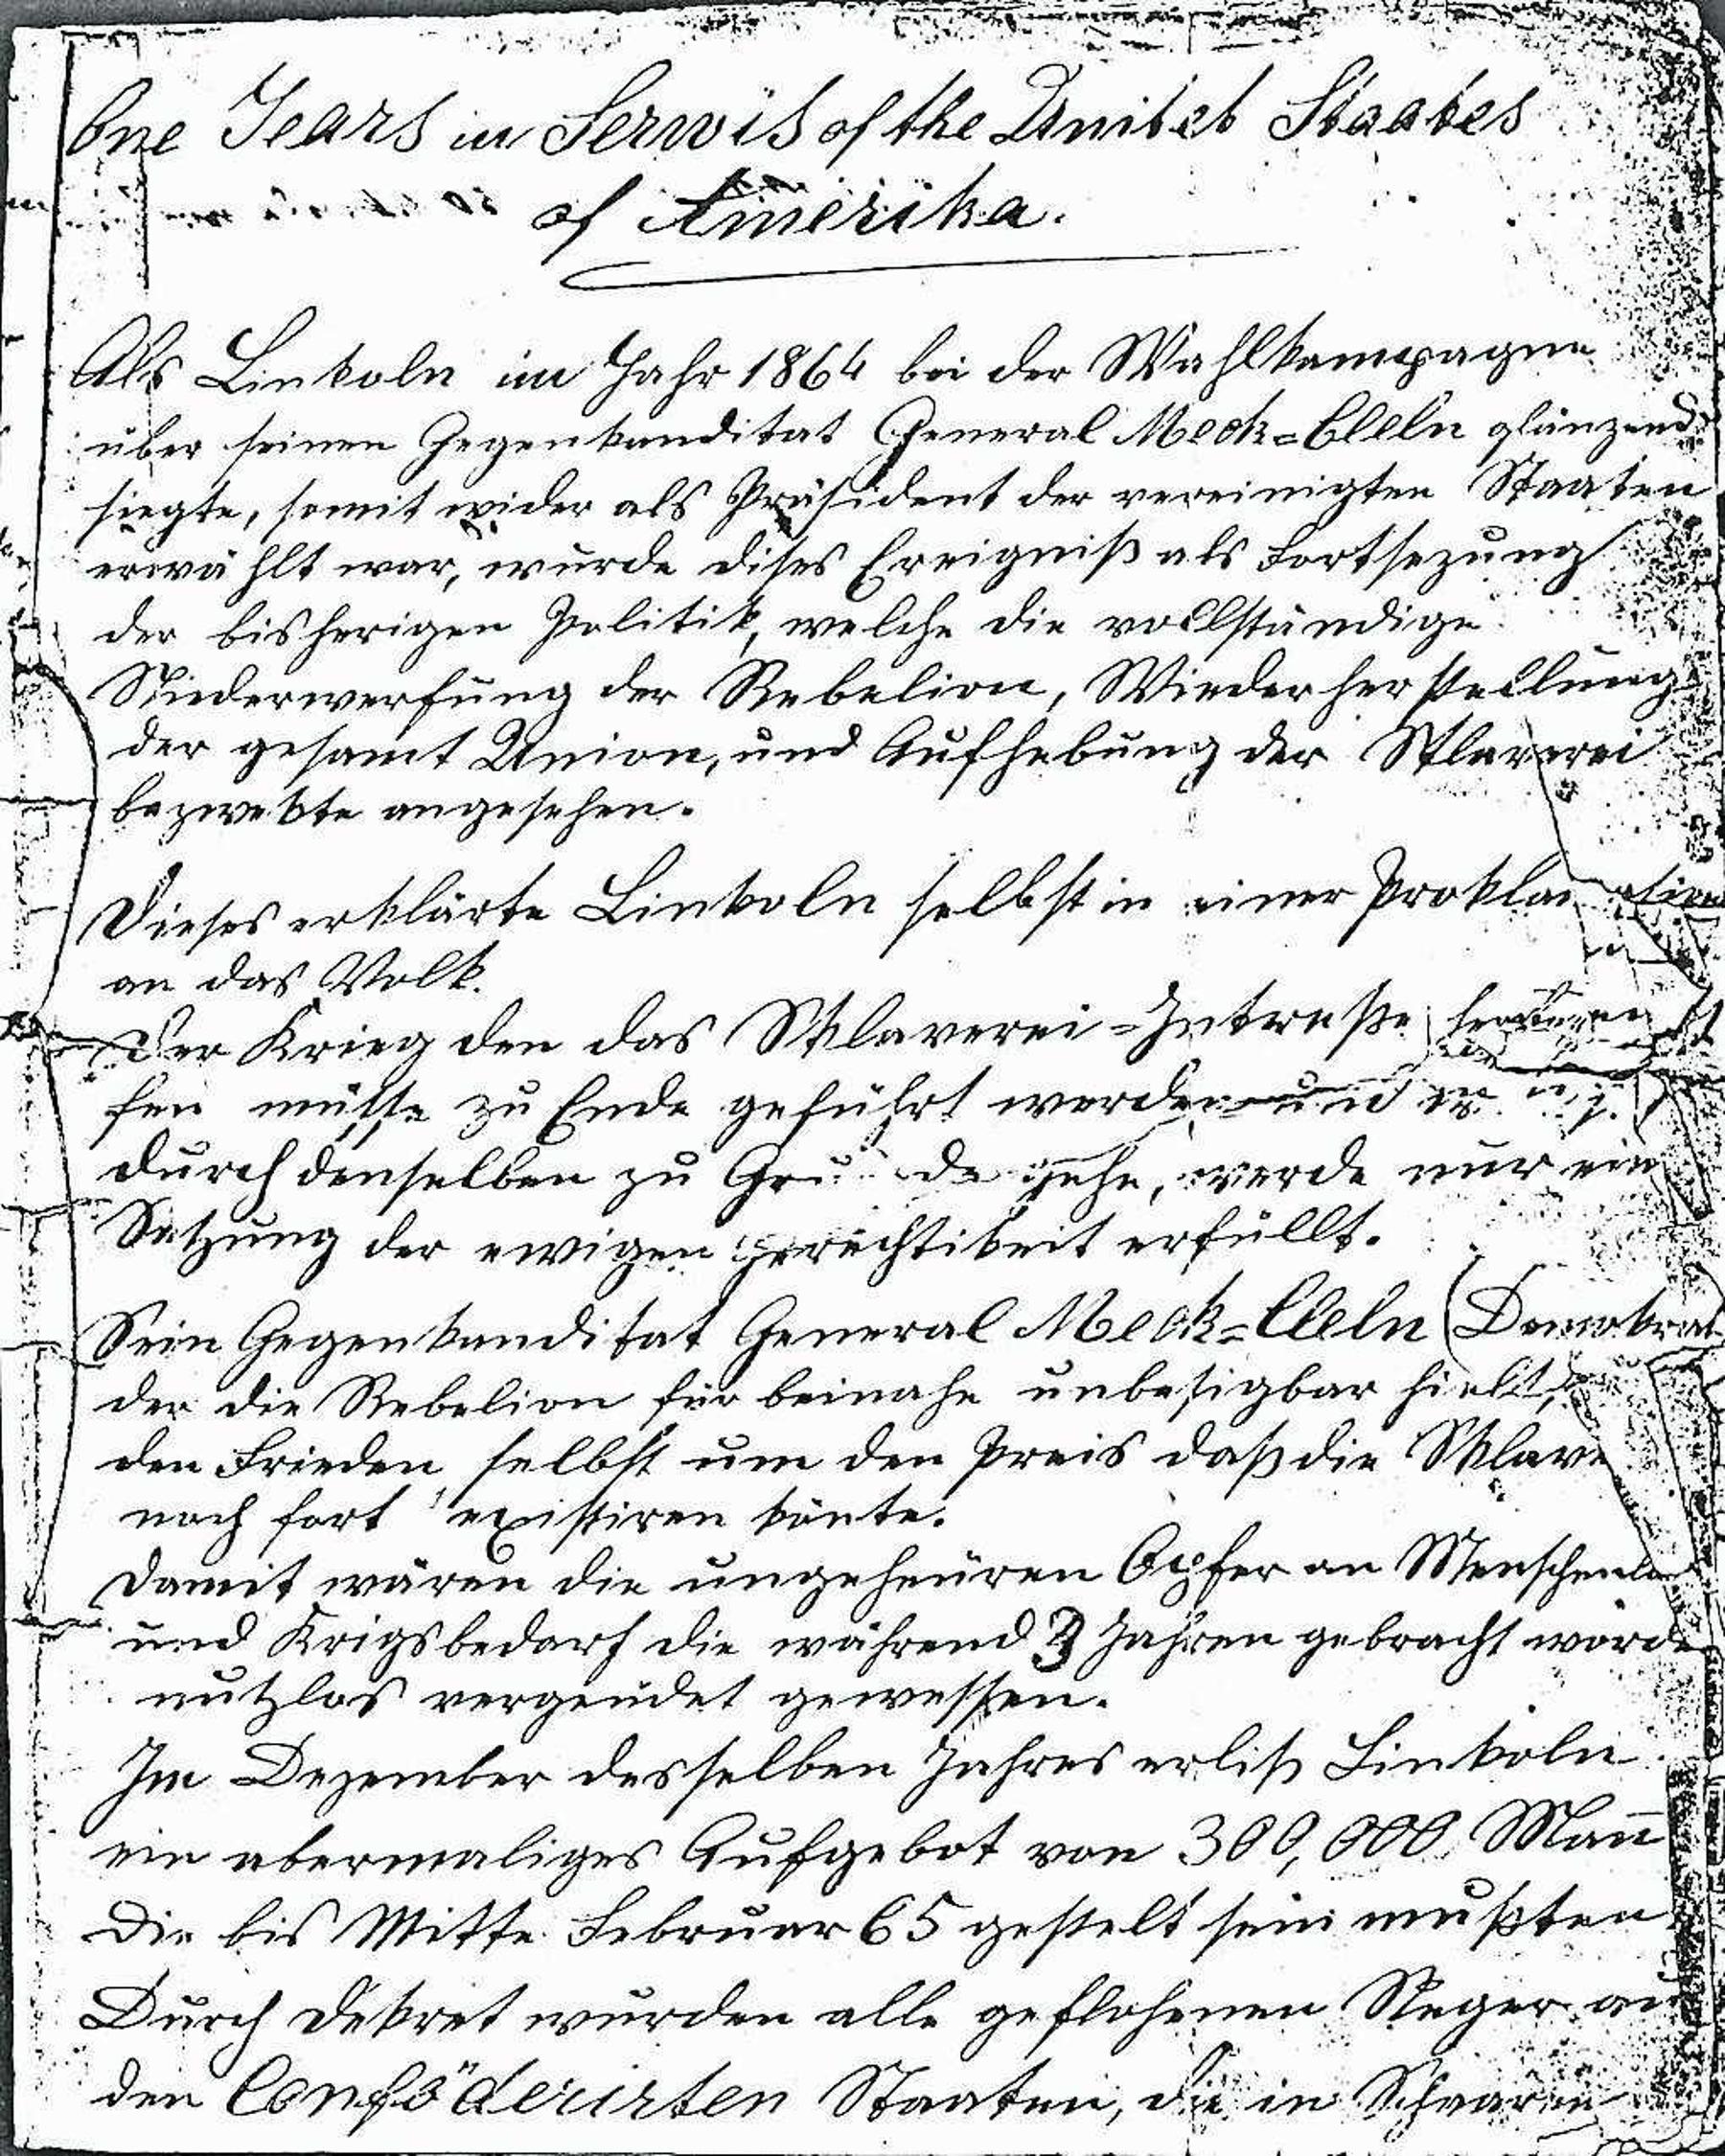 One Years in Serwis of the Unitet Staates
of Amerika.
Als Linkoln im Jahr 1864 bei der Wahlkampagne
über seinen Gegenkanditat General Meck=Cleln glänzend
siegte, somit wider als Präsident der vereinigten Staaten
erwählt war, wurde dises Ereigniß als Fortsezung
der bisherigen Politik, welche die vollständige
Niederwerfung der Rebelion, Wiederherstellung
der gesamt Union, und Aufhebung der Sklaverei
bezwekte angesehen.
Dieses erklärte Linkoln selbst in einer Proklamation
an das Volk.
Der Krieg den das Sklaverei=Intreße
fen müsse zu Ende geführt werden und
durch denselben zu Grunde gehe, werde nur ein
Satzung der ewigen Gerechtikeit erfüllt.
Sein Gegenkanditat General Meck=Cleln (Demokrat
der die Rebelion für beinahe unbesigbar hielt,
den Frieden, selbst um den Preis daß die Sklave
noch fort existiren könte.
Damit wären die ungeheüren Opfer an Menschenle
und Krigsbedarf die während 3 Jahren gebracht worde
nutzlos vergeudet gewessen.
Im Dezember desselben Jahres erliß Linkoln
ein abermaliges Aufgebot von 300,000 Man̄
Die bis Mitte Februar 65 gestelt sein mußten
Durch Dekret wurden alle geflohenen Neger au
den Conföderirten Staaten, die in Schaaren